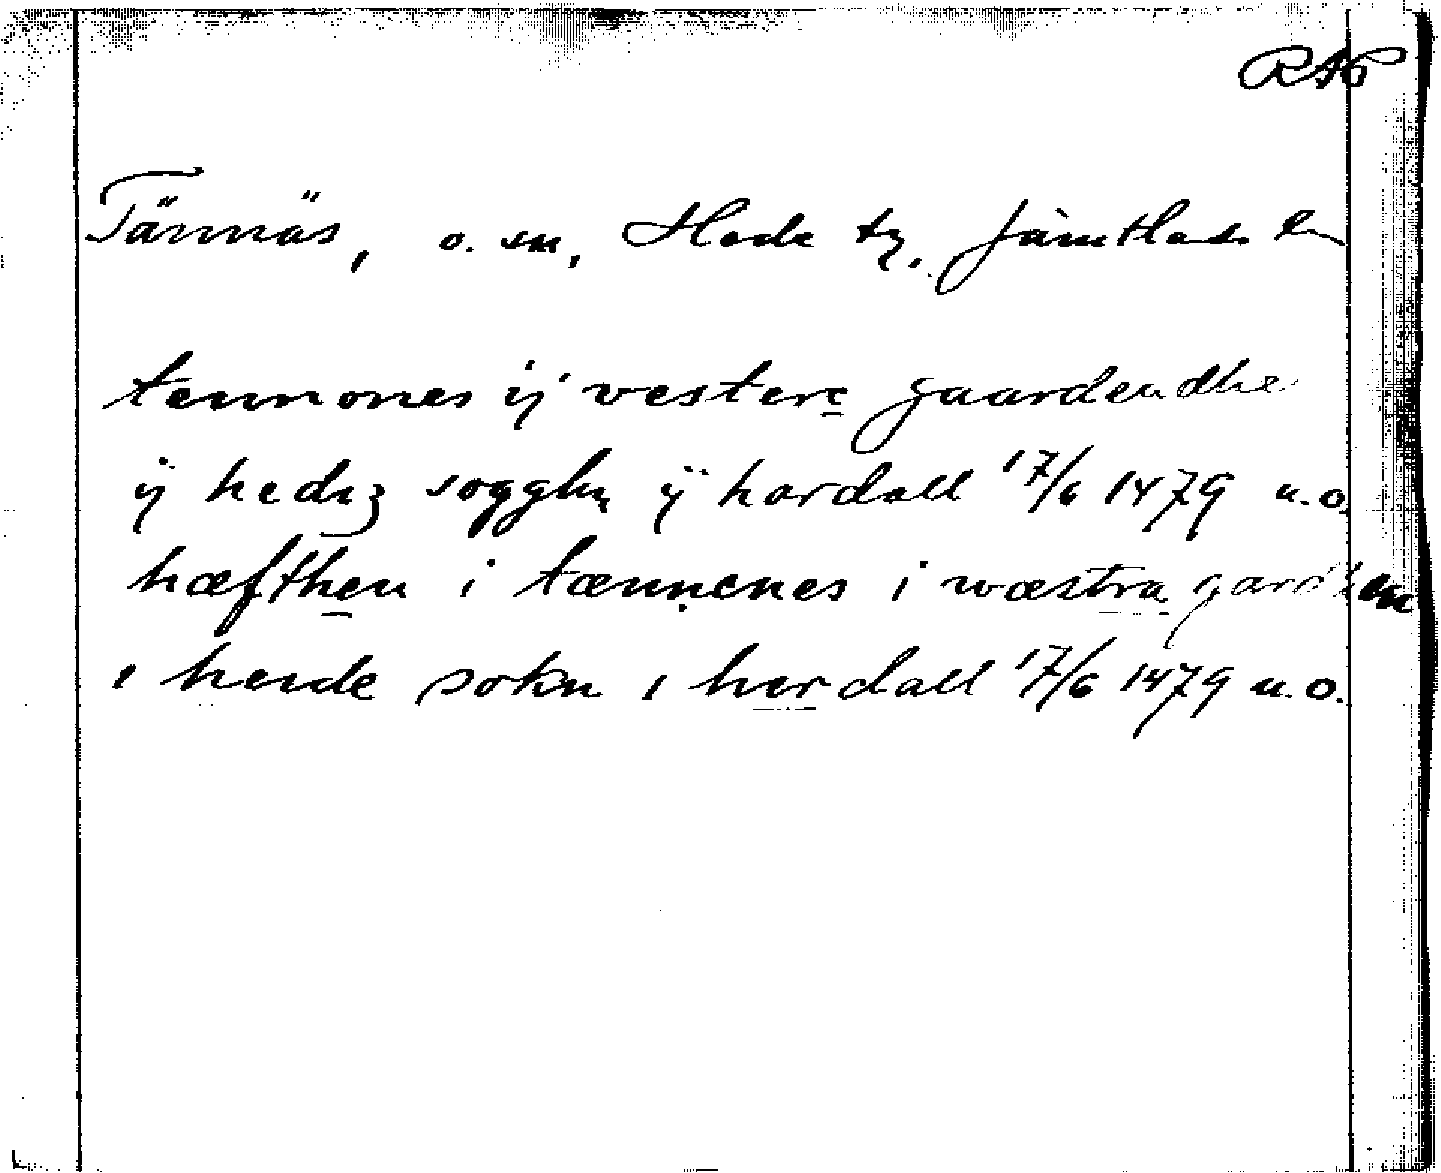 RAP
Tännäs, o. sn, Hede tg. Jämtlads län
tennones ij vestere gaardendhe
ij hedz sogghn ij hardall 17/6 1479 u.o.
hæfthen i tænnenes i wæstra gardhen
i hede sokn i herdall 17/6 1479 u.o.